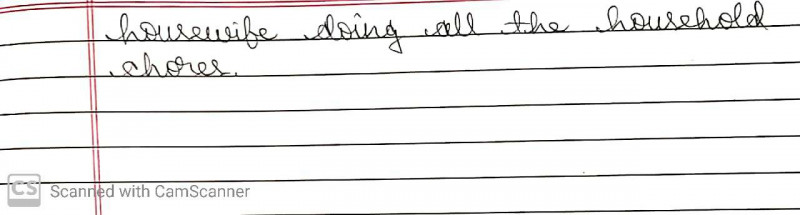 housewife doing all the household
chores.
CS Scanned with CamScanner